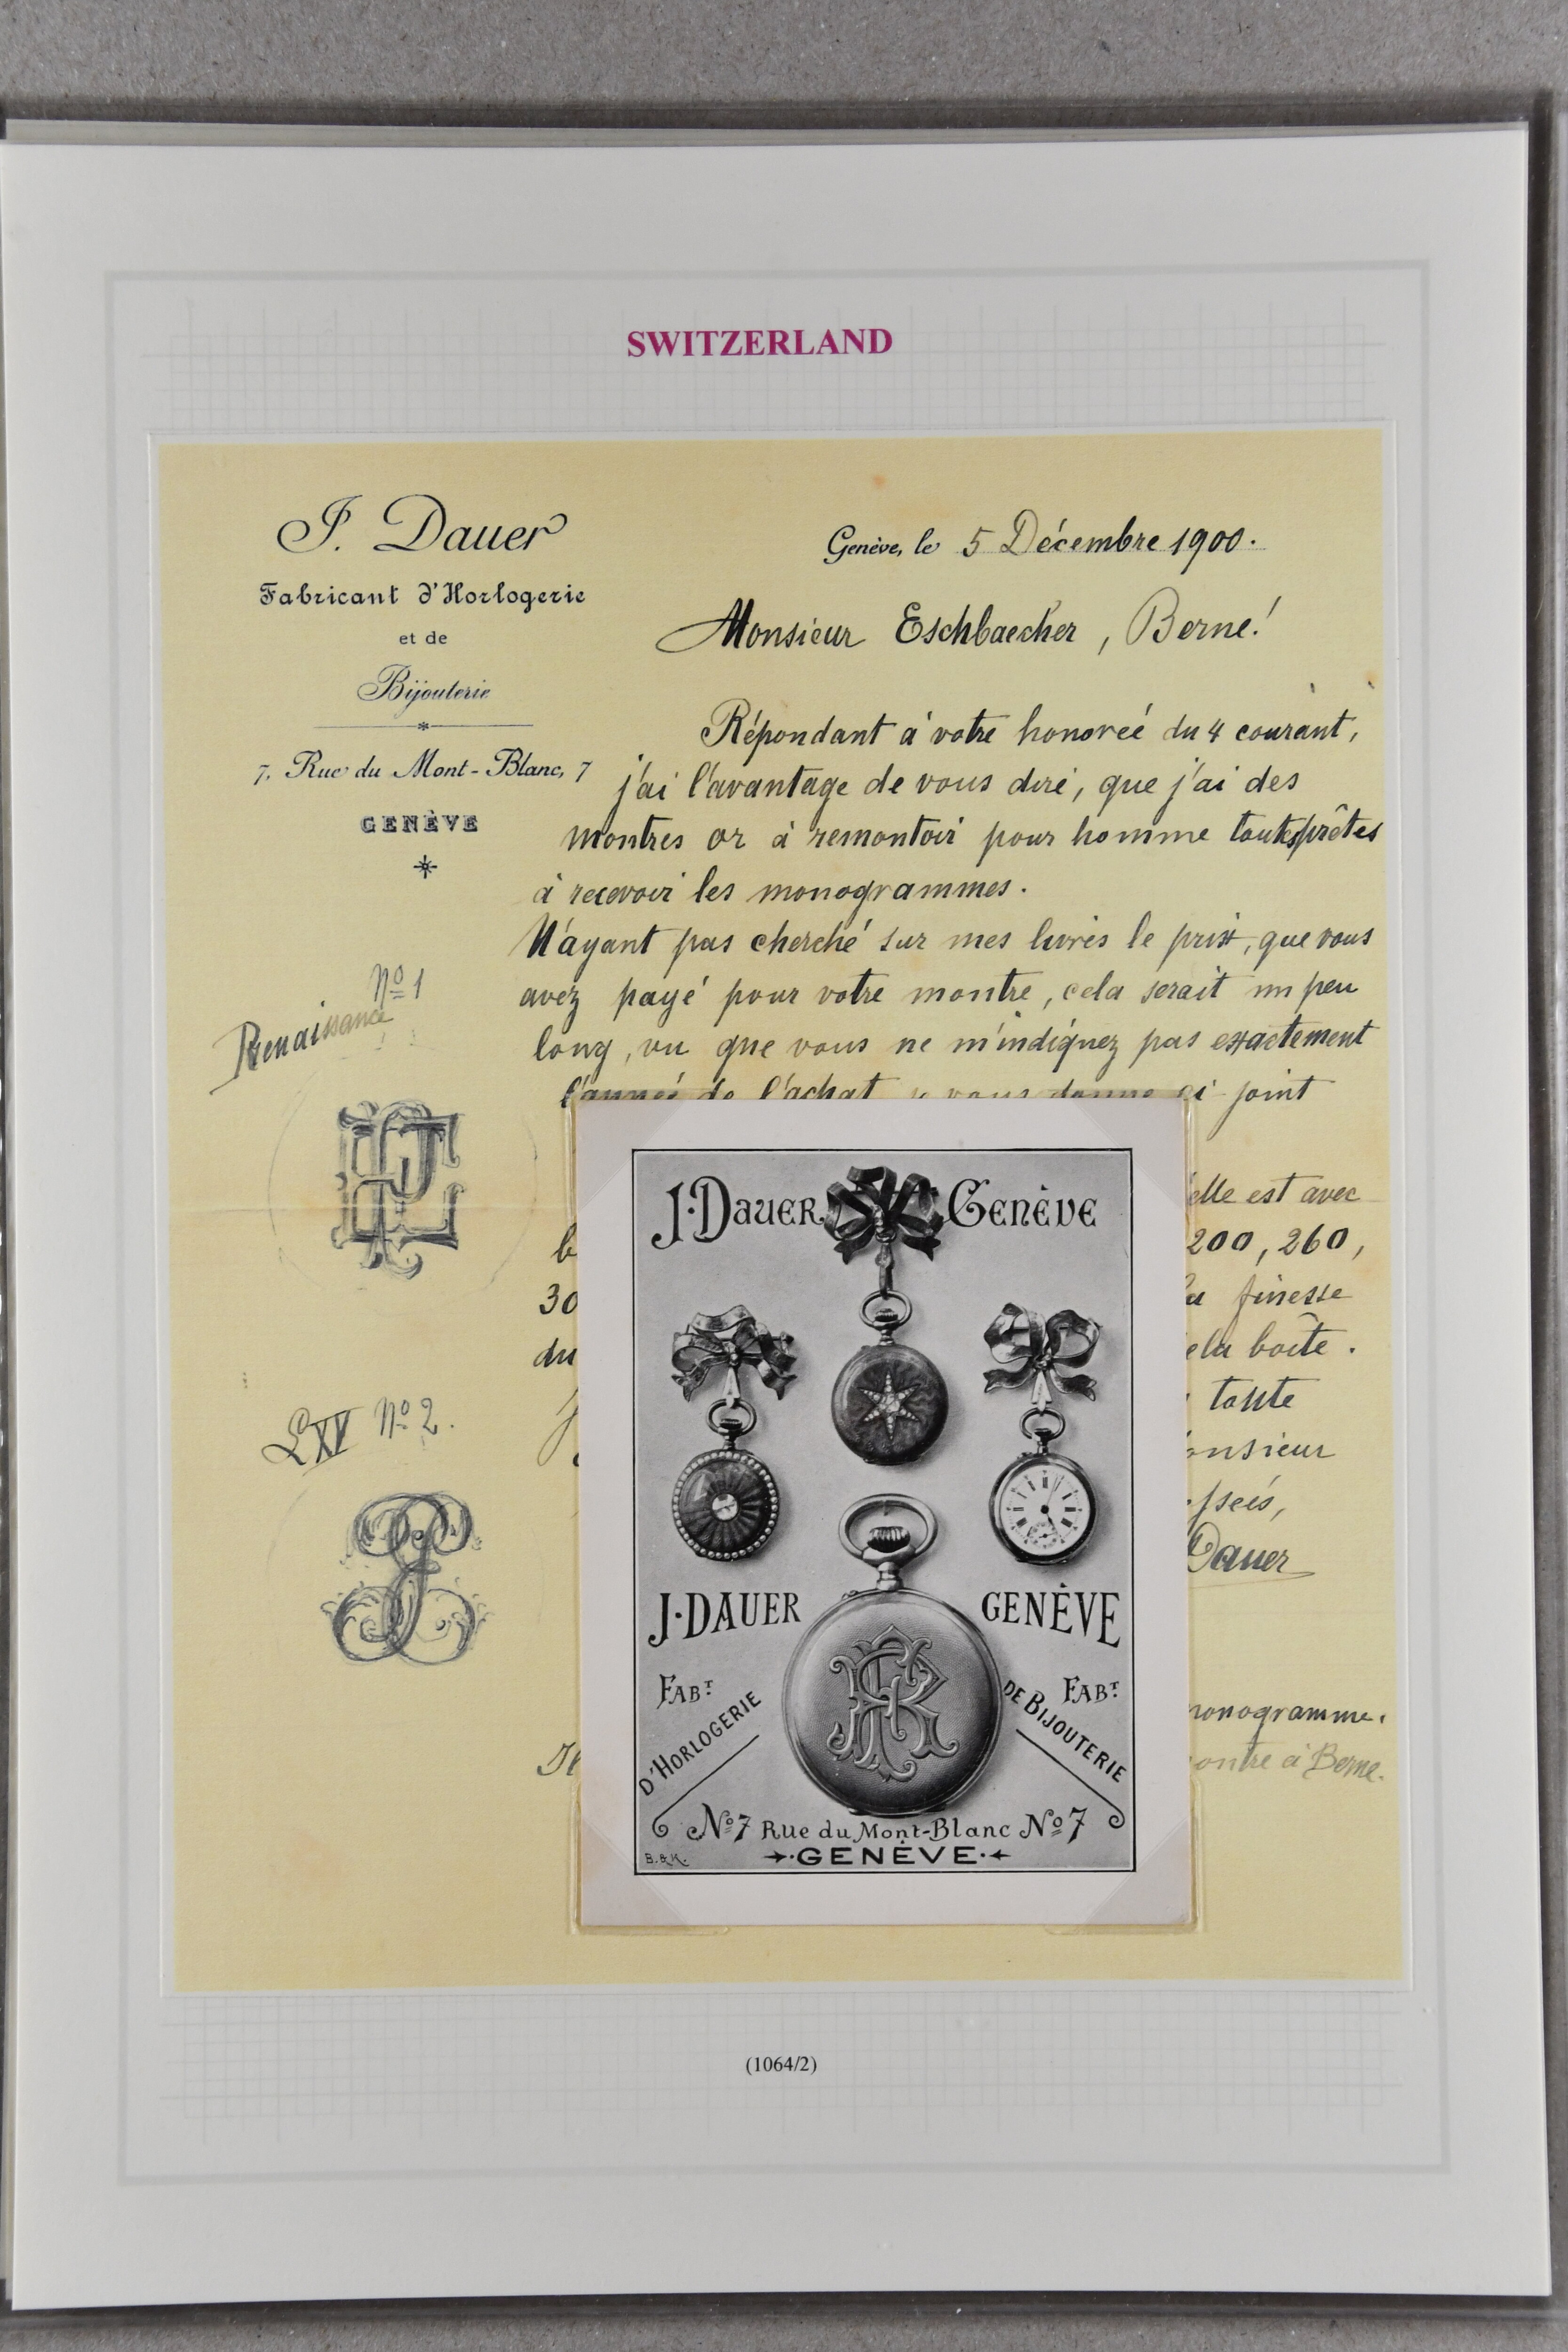 SWITZERLAND
J. Dauer
Fabricant d'Horlogerie
et de
Bijouterie
7, Rue du Mont-Blanc, 7
GENÈVE
Genève, le 5 Décembre 1900.
Monsieur Eschbaecher, Berne!
Répondant à votre honoreé du 4 courant,
j'ai l'avantage de vous dire, que j'ai des
montres or à remontoir pour homme toutes prêtes
à recevoir les monogrammes.
N'ayant pas cherché sur mes livres le prix, que vous
avez payé pour votre montre, cela serait un peu
long, vu que vous ne m'indiquez pas exactement
l'année de l'achat, je vous donne ci-joint
elle est avec
200, 260,
30
finesse
du
la boîte.
toute
onsieur
Dauer
monogramme.
ontre à Berne.
No 1
Renaissance
LXV No 2.
J. DAUER GENÈVE
J. DAUER GENÈVE
FABT D'HORLOGERIE
FABT DE BIJOUTERIE
No 7 Rue du Mont-Blanc No 7
GENÈVE
B. & K.
(1064/2)